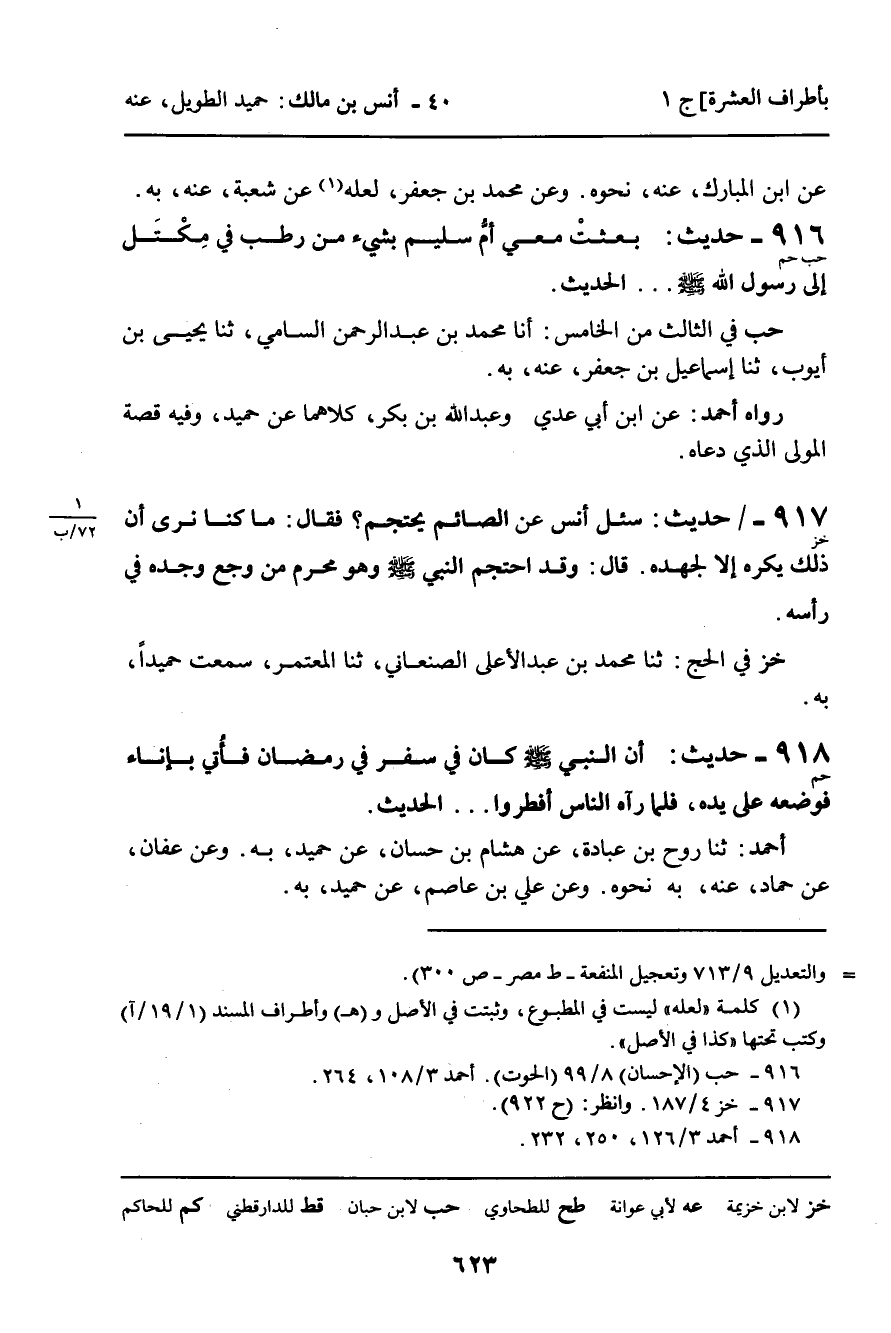 بأطراف العشرة] ج ١ ٤٠ ـ أنس بن مالك: حميد الطويل، عنه
عن ابن المبارك، عنه، نحوه. وعن محمد بن جعفر، لعله(١) عن شعبة، عنه، به.
٩١٦ ـ حديث: بـعـثـتْ مـعـي أمُّ سـليـم بشيء مـن رطـب في مِكْـتَـل
حب حم
إلى رسول الله ﷺ... الحديث.
حب في الثالث من الخامس: أنا محمد بن عبدالرحمن السامي، ثنا يحيـى بن
أيوب، ثنا إسماعيل بن جعفر، عنه، به.
رواه أحمد: عن ابن أبي عدي وعبدالله بن بكر، كلاهما عن حميد، وفيه قصة
المولى الذي دعاه.
٩١٧ ـ / حديث: سئـل أنس عن الصائـم يحتجـم؟ فقـال: مـا كنـا نـرى أن
١
٧٢/ب
خز
ذلك يكره إلا لجهـده. قال: وقـد احتجم النبي ﷺ وهو محـرم من وجع وجـده في
رأسه.
خز في الحج: ثنا محمد بن عبدالأعلى الصنعـاني، ثنا المعتمـر، سمعت حميداً،
به.
٩١٨ ـ حديث: أن النبي ﷺ كـان في سفـر في رمضـان فـأُتي بـإنـاء
حم
فوضعه على يده، فلما رآه الناس أفطروا... الحديث.
أحمد: ثنا روح بن عبادة، عن هشام بن حسان، عن حميد، بـه. وعن عفان،
عن حماد، عنه، به نحوه. وعن علي بن عاصم، عن حميد، به.
= والتعديل ٧١٣/٩ وتعجيل المنفعة ـ ط مصر ـ ص ٣٠٠).
(١) كلمـة «لعله» ليست في المطبـوع، وثبتت في الأصل و (هـ) وأطـراف المسند (١/١٩/آ)
وكتب تحتها «كذا في الأصل».
٩١٦ ـ حب (الإحسان) ٩٩/٨ (الحوت). أحمد ١٠٨/٣، ٢٦٤.
٩١٧ ـ خز ١٨٧/٤. وانظر: (ح ٩٢٢).
٩١٨ ـ أحمد ١٢٦/٣، ٢٥٠، ٢٣٢.
خز لابن خزيمة عه لأبي عوانة طح للطحاوي حب لابن حبان قط للدارقطني كم للحاكم
٦٢٣